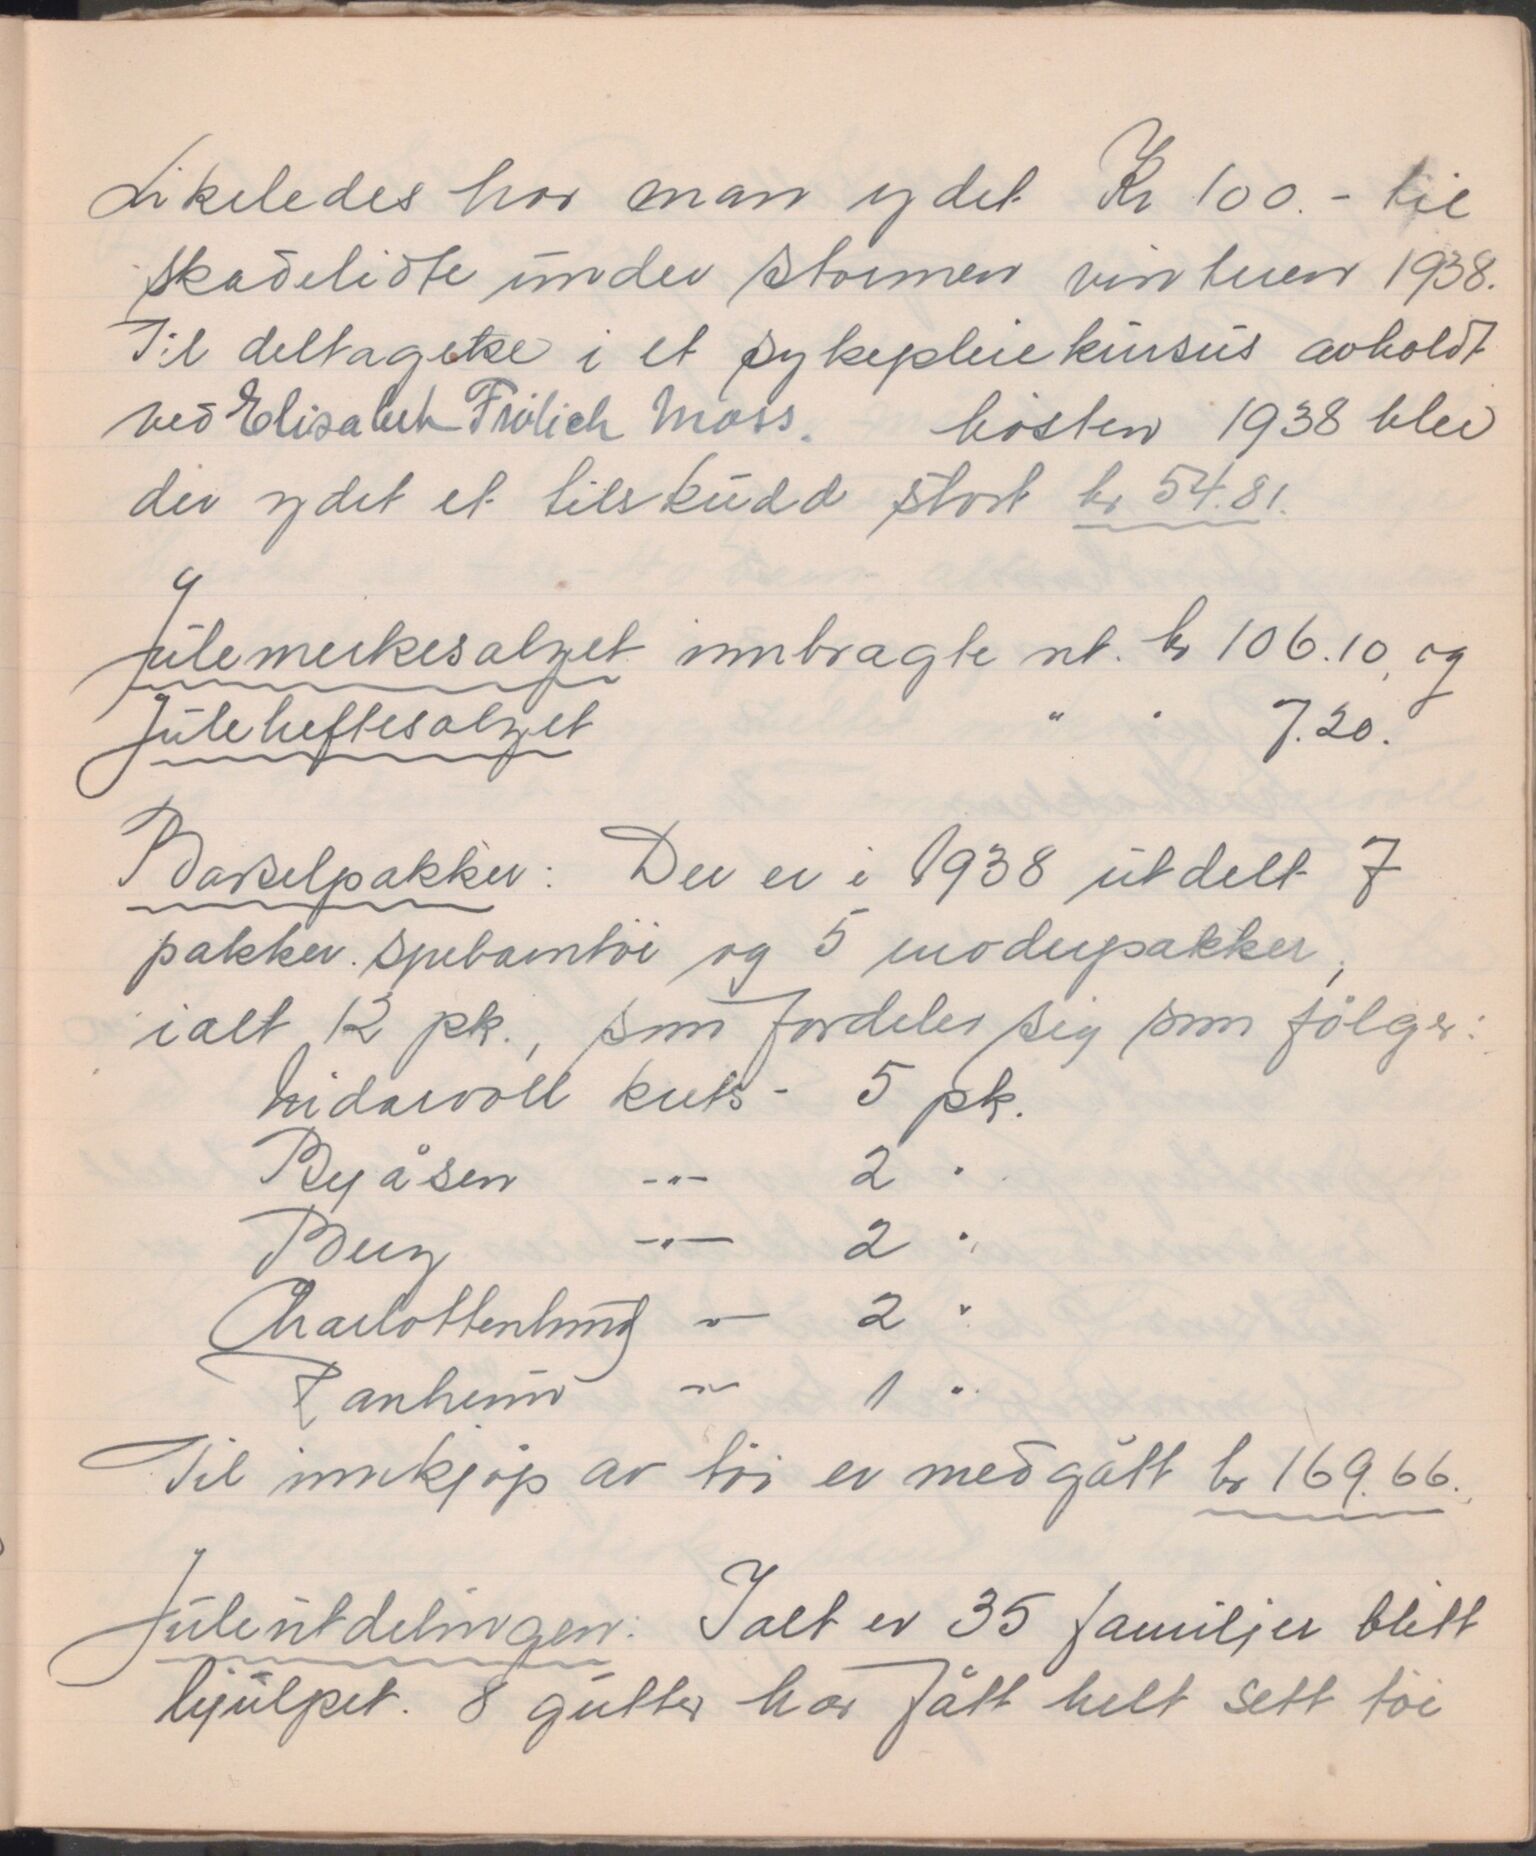 Likeledes har man ydet Kr 100.- til
skadelidte under stormen vinteren 1938.
Til deltagelse i et sykepleiekursus avholdt
ved Elisabeth Frölich Moss. høsten 1938 blev
der ydet et tilskudd stort kr 54.81.
Julemerkesalget innbragte nt. kr 106.10, og
Juleheftesalget " " 7.20.
Barselpakker: Der er i 1938 utdelt 7
pakker spebarntöi og 5 moderpakker,
ialt 12 pk., som fordeler sig som følger:
Nidarvoll krets - 5 pk.
Byåsen -"- 2 "
Berg -"- 2 "
Charlottenlund -"- 2 "
Ranheim -"- 1 "
Til innkjøp av töi er medgått kr 169.66.
Juleutdelingen: Ialt er 35 familjer blitt
hjulpet. 8 gutter har fått helt sett töi